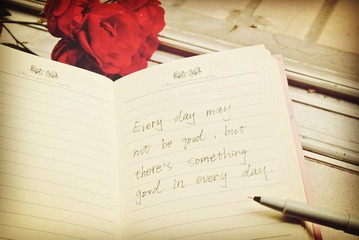 Every day may
not be good, but
there's something
good in every day.